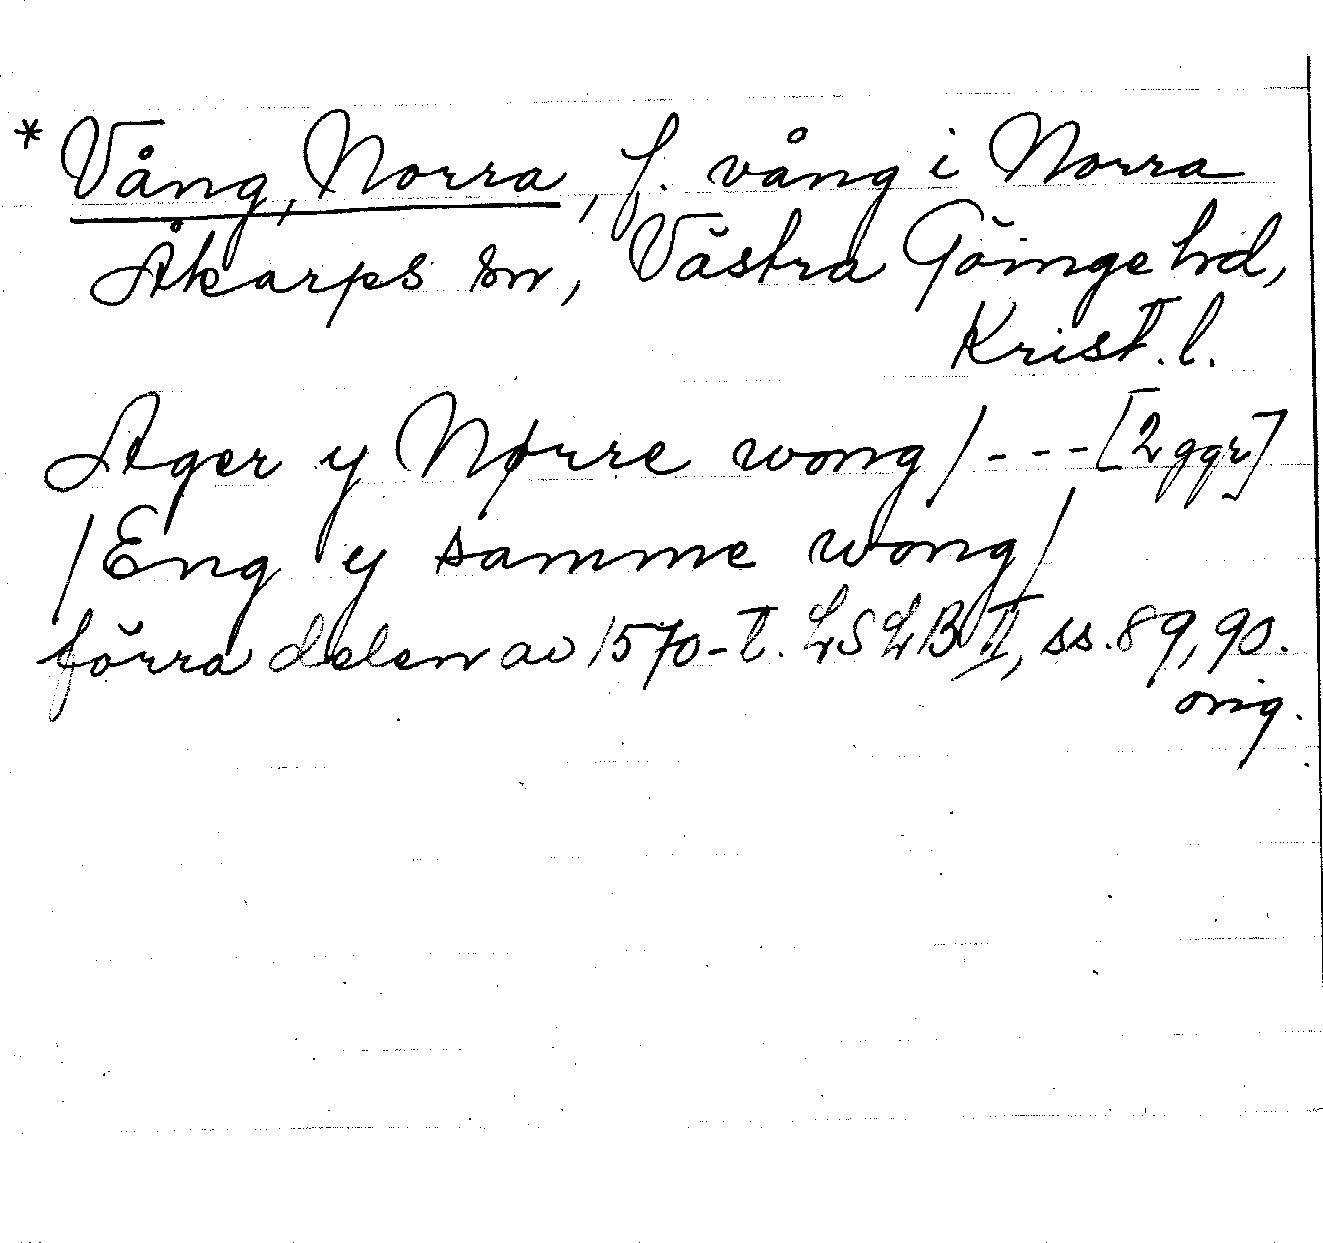 * Vång, Norra, f. vång i Norra
Åkarps sn, Västra Göinge hd,
Krist. l.
Ager y Nørre wong/---[2 ggr]
/Eng y samme wong/
förra delen av 1570-t. LSLB II, ss. 89, 90.
orig.